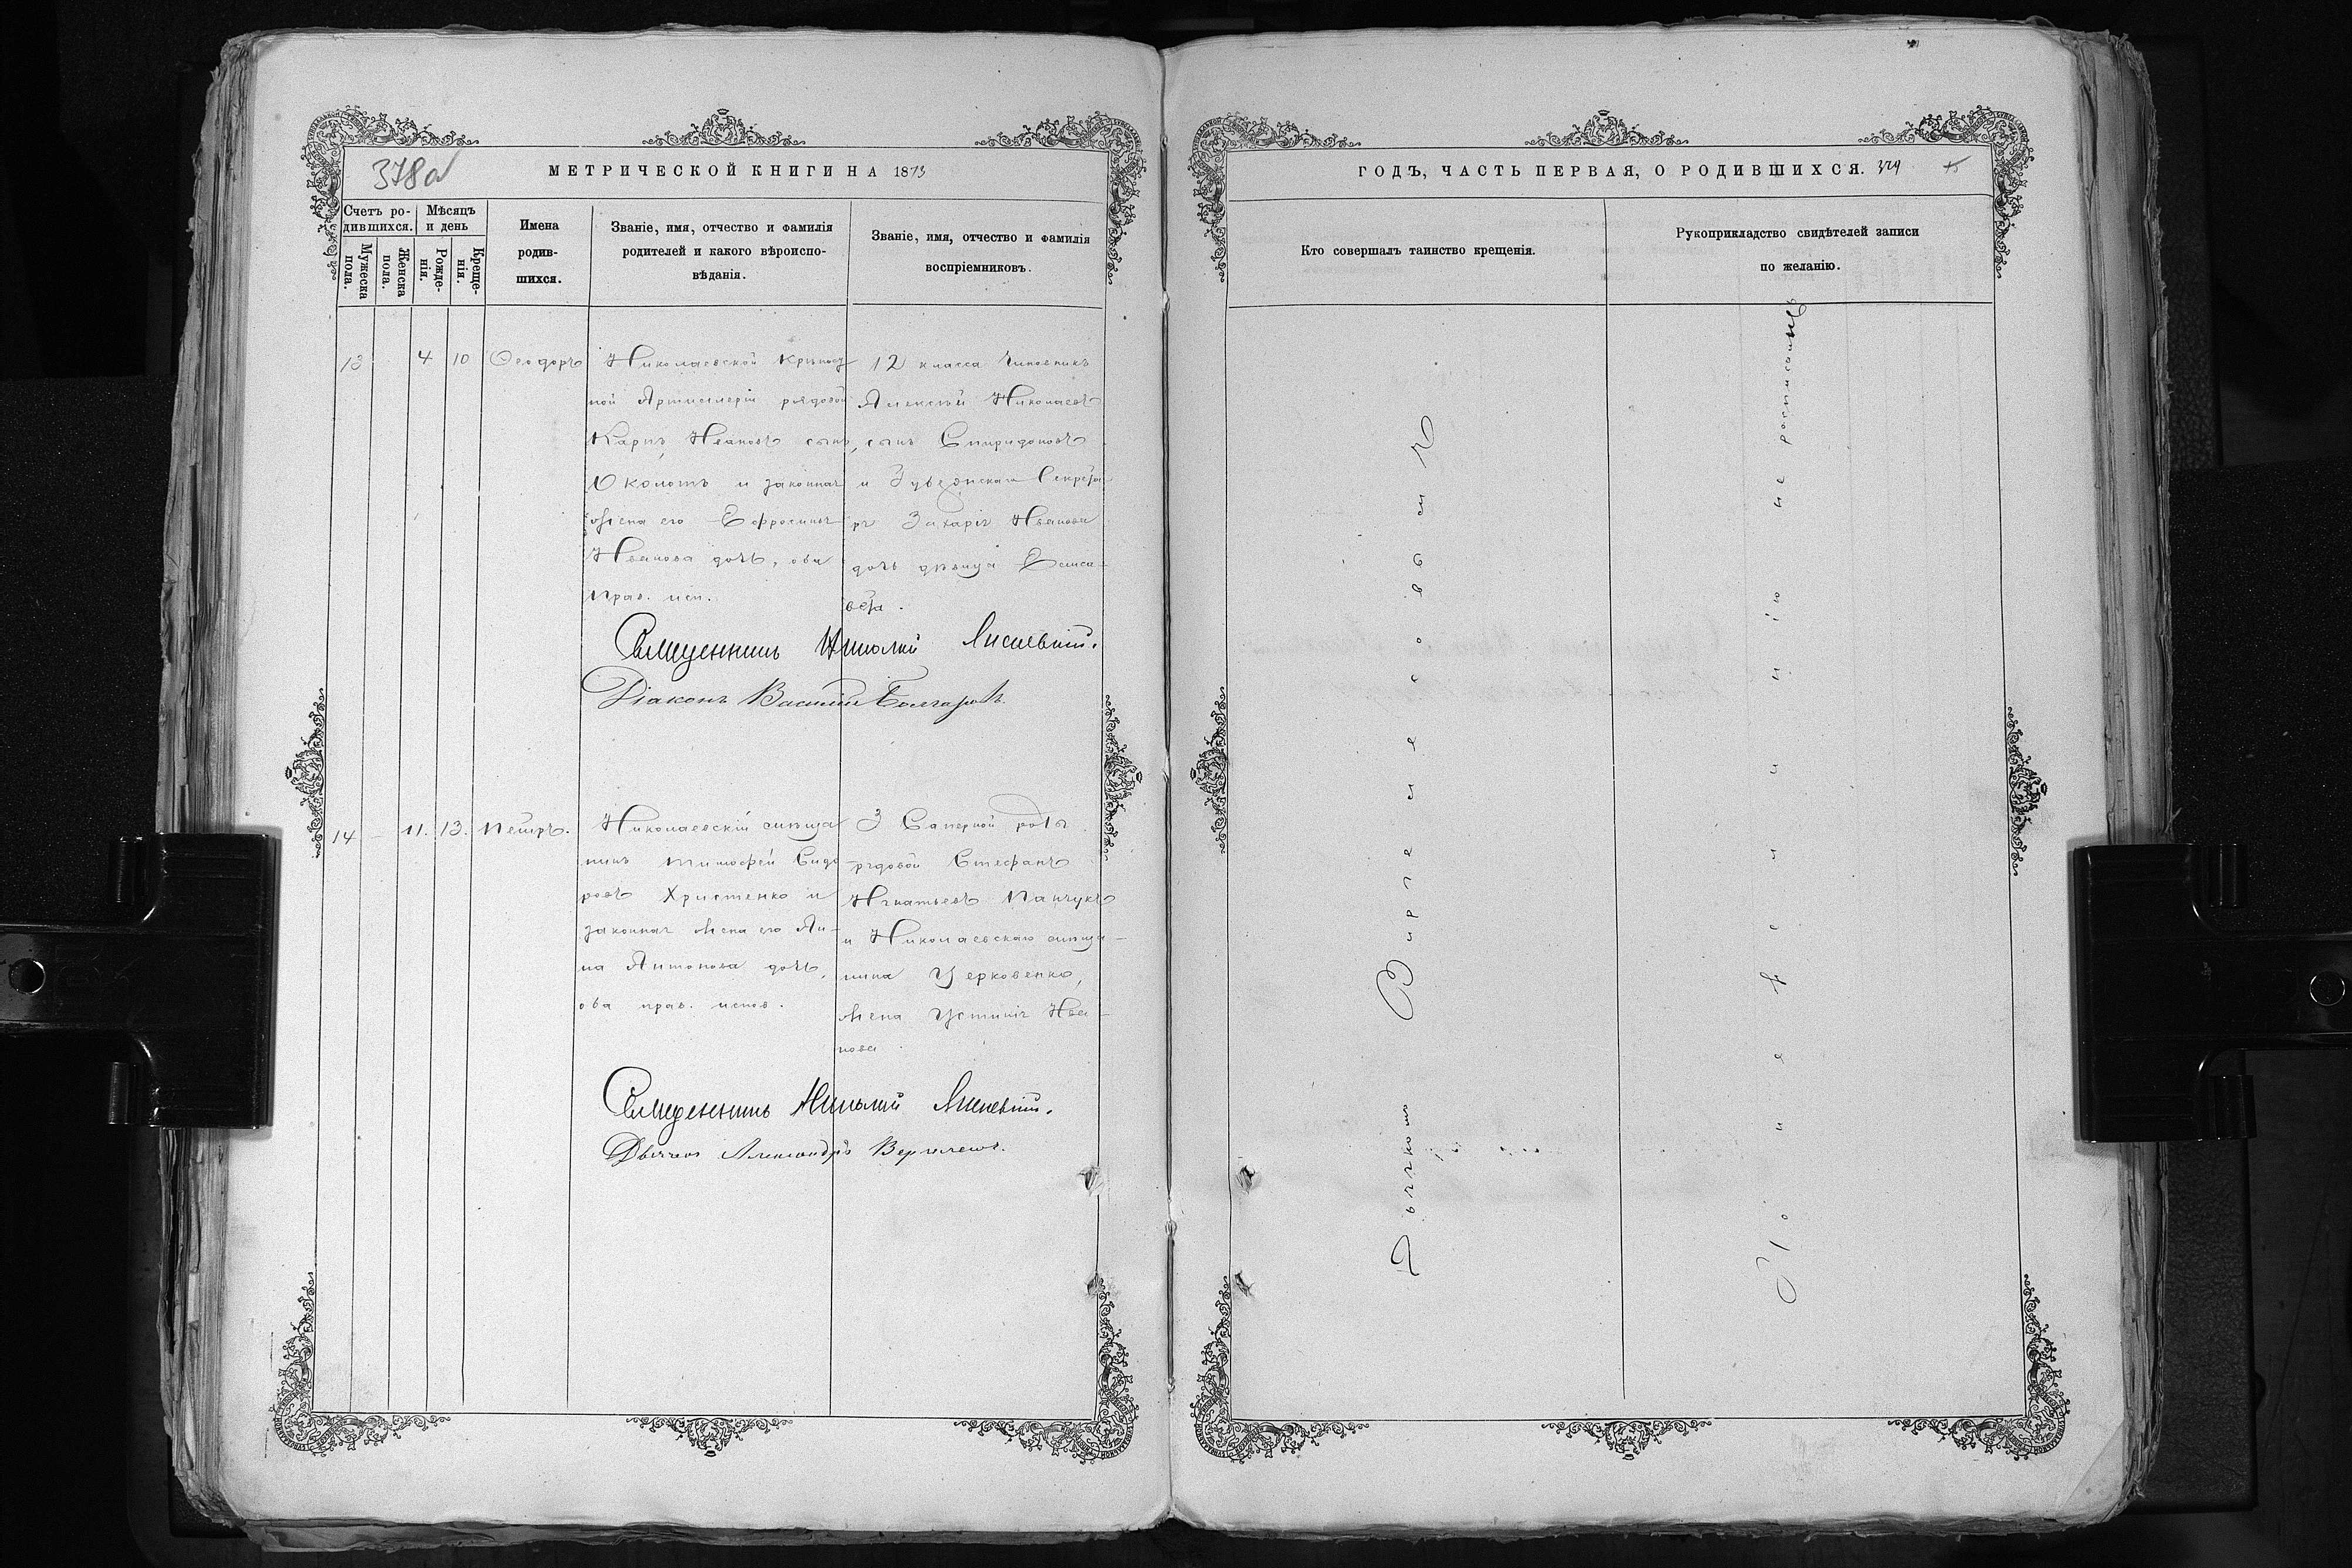 378 об
МЕТРИЧЕСКОЙ КНИГИ НА 1873
Счетъ родившихся.
Мужеска пола.
Женска пола.
Мѣсяцъ и день
Рожденія.
Крещенія.
Имена родившихся.
Званіе, имя, отчество и фамилія родителей и какого вѣроисповѣданія.
Званіе, имя, отчество и фамилія воспріемниковъ.
13
4
10
Ѳеодоръ
Николаевской Крѣпост
ной Артиллеріи рядовой
Карпъ Ивановъ сынъ,
Околотъ и законная
жена его Ефросинья
Иванова дочь, оба
прав. исп.
12 класса Чиновникъ
Алексѣй Николаевъ
сынъ Спиридоновъ
и Губернскаго Секрета
ря Захарія Иванова
дочь дѣвица Елиса-
вета.
Священникъ Николай
Діаконъ Василій
14
11.
13.
Петръ.
Николаевскій мѣща
нинъ Тимофей Сидо
ровъ Христенко и
законная жена его Ан-
на Антонова дочь,
оба прав. испов.
3 Саперной роты
рядовой Стефанъ
Игнатьевъ Панчукъ
и Николаевскаго мѣща-
нина Церковенко,
жена Устинія Ива-
нова
Священникъ Николай
Дьячокъ Александръ
ГОДЪ, ЧАСТЬ ПЕРВАЯ, О РОДИВШИХСЯ. 379
Кто совершалъ таинство крещенія.
Рукоприкладство свидѣтелей записи по желанію.
Дьячкомъ
По неимѣнію не росписаны